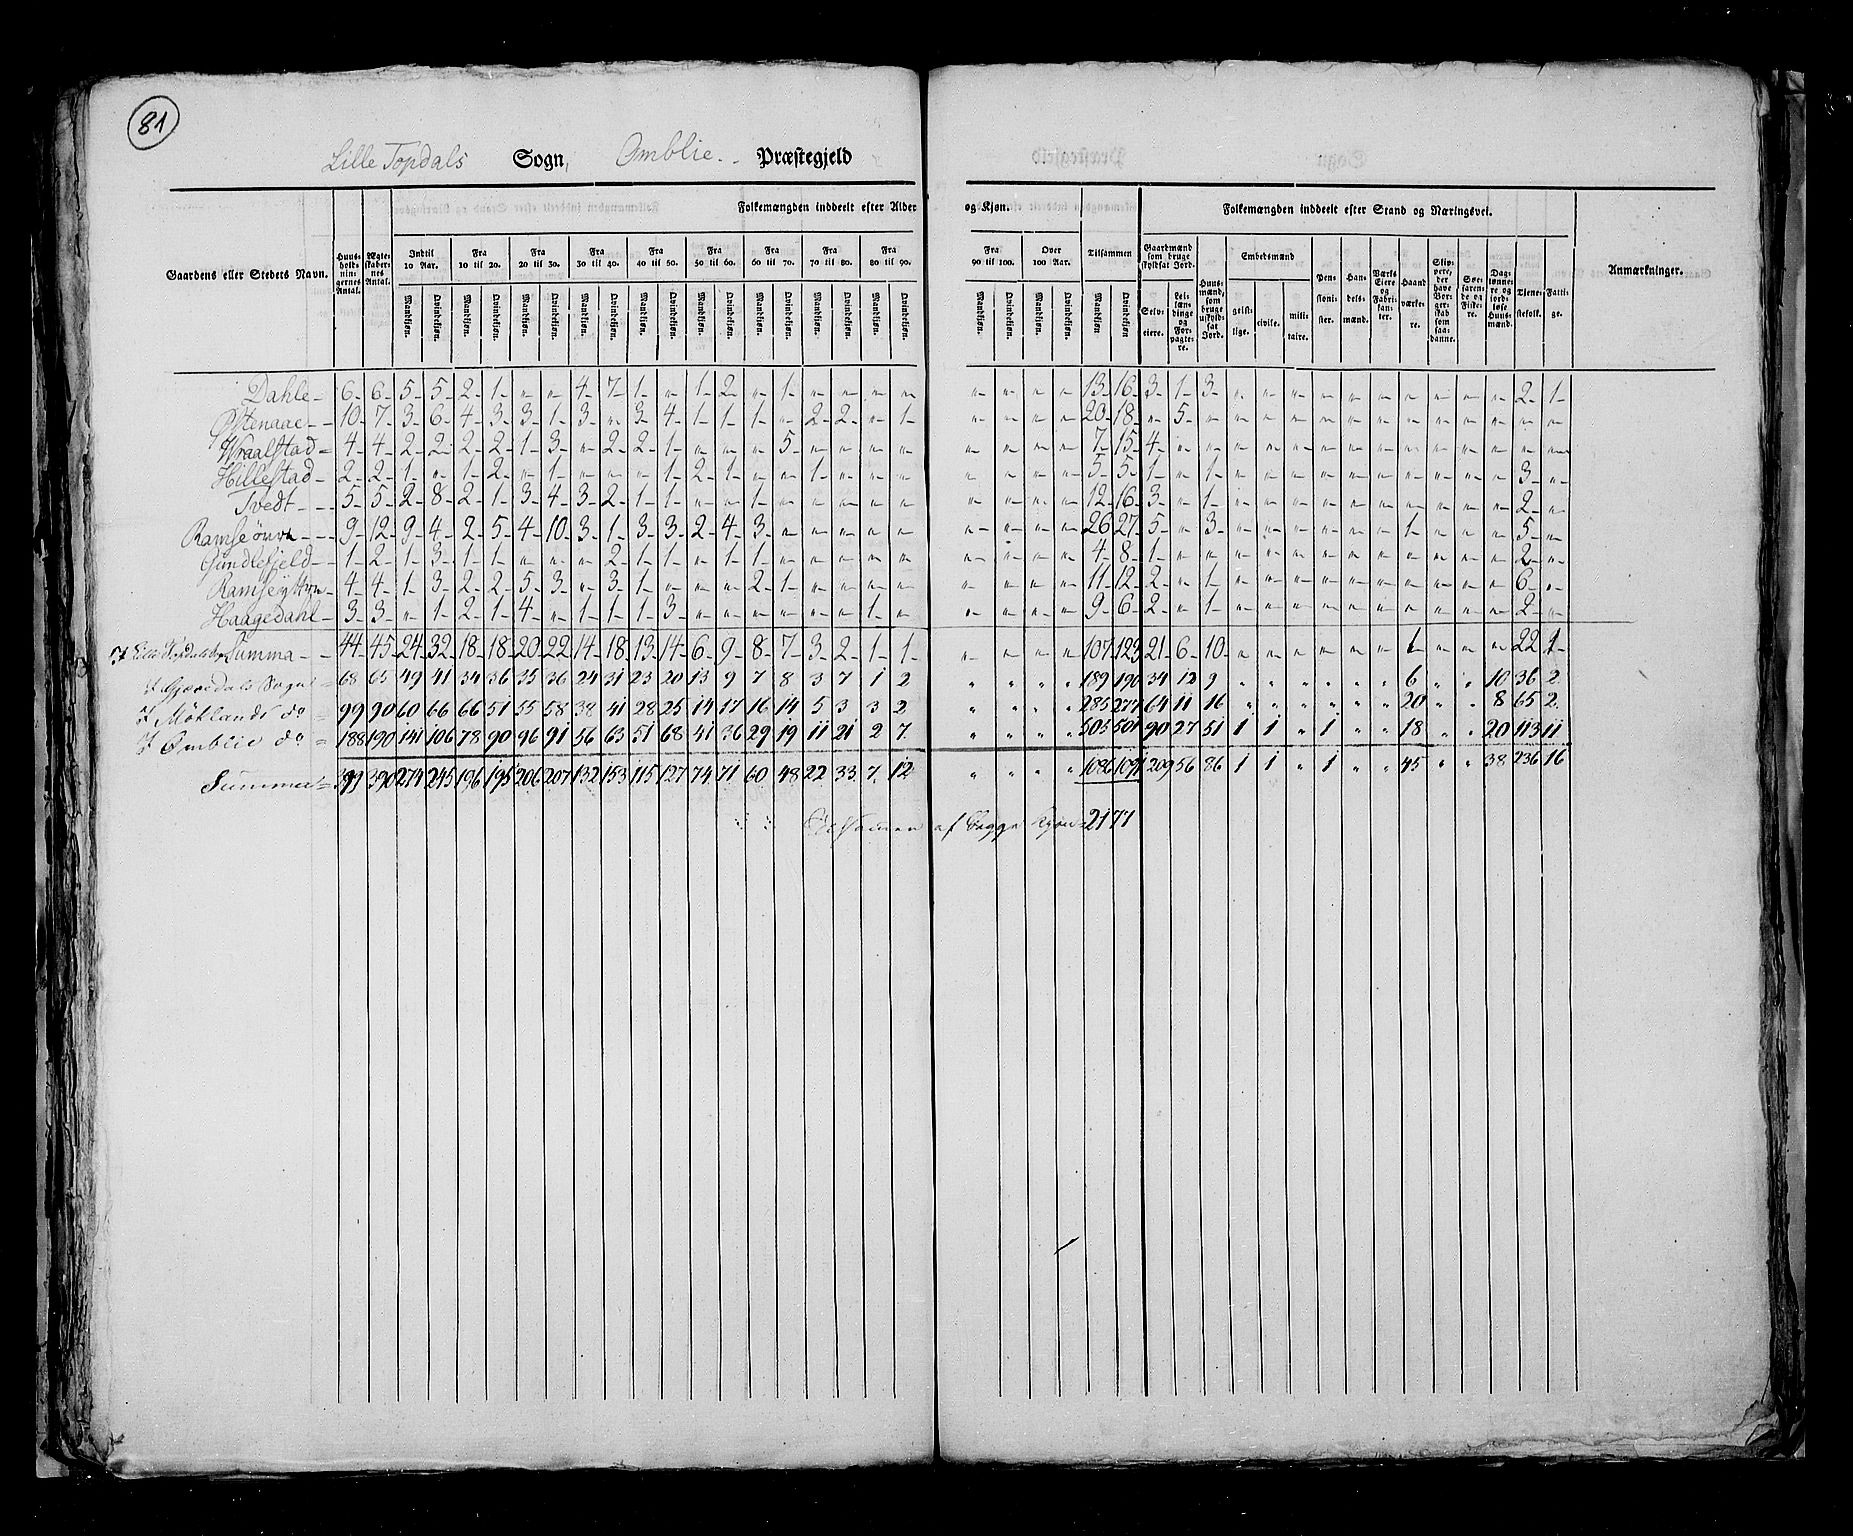 81
Lille Topdals Sogn, Omblie Præstegjeld
Folkemængden inddeelt efter Alder og Kjøn. Folkemængden inddeelt efter Stand og Næringsvei.
Gaardens eller Stedets Navn. Huus-hold-nin-gernes Antal. Ægte-skaber-nes Antal. Indtil 10 Aar. Fra 10 til 20. Fra 20 til 30. Fra 30 til 40. Fra 40 til 50. Fra 50 til 60. Fra 60 til 70. Fra 70 til 80. Fra 80 til 90. Fra 90 til 100. Over 100 Aar. Tilsammen Gaardmænd som bruge skyldsat Jord. Huus-mænd, som bruge uskyld-sat Jord. Embedsmænd Pen-sioni-ster. Han-dels-mænd. Værks Eiere og Fabri-kan-ter. Haand-værke-re. Slip-pere, der have Bor-ger-skab som saa-danne. Søe-farende og Fiske-re. Dag-lønne-re og jord-løse Huus-mænd. Tjene-stefolk. Fatti-ge. Anmærkninger.
Mandkjøn. Qvindekjøn. Mandkjøn. Qvindekjøn. Mandkjøn. Qvindekjøn. Mandkjøn. Qvindekjøn. Mandkjøn. Qvindekjøn. Mandkjøn. Qvindekjøn. Mandkjøn. Qvindekjøn. Mandkjøn. Qvindekjøn. Mandkjøn. Qvindekjøn. Mandkjøn. Qvindekjøn. Mandkjøn. Qvindekjøn. Mandkjøn Qvindekjøn. Selv-eiere. Lei-læn-dinge og For-pagte-re. geist-lige. civile. mili-taire.
Dahle 6 6 5 5 2 1 " " 4 7 1 " 1 2 " 1 " " " " " " " " 13 16 3 1 3 " " " " " " " " " " 2 1
Østenaae 10 7 3 6 4 3 3 1 3 " 3 4 1 1 1 " 2 2 " 1 " " " " 20 18 " 5 " " " " " " " " " " " " "
Wraalstad 4 4 2 2 2 2 1 3 " 2 2 1 " " " 5 " " " " " " " " 7 15 4 " " " " " " " " " " " " " "
Hillestad 2 2 1 " 1 2 " 1 " " " 1 2 1 " " 1 " " " " " " " 5 5 1 " 1 " " " " " " " " " " 3 "
Tvedt 5 5 2 8 2 1 3 4 3 2 1 1 " " 1 " " " " " " " " " 12 16 3 " 1 " " " " " " " " " " 2 "
9 12 9 4 2 5 4 10 3 1 3 3 2 4 3 " " " " " " " " " 26 27 5 " 3 " " " " " " 1 " " " 5 "
Gundlefjeld 1 2 1 3 1 1 " " " 2 1 " 1 1 " " " " " " " " " 4 8 1 " " " " " " " " " " " " 2 "
4 4 1 3 2 2 5 3 " 3 1 " " " 2 1 " " " " " " " " 11 12 2 " 1 " " " " " " " " " " 6 "
Haagedahl 3 3 " 1 2 1 4 " 1 1 1 3 " " " " " " 1 " " " " " 9 6 2 " 1 " " " " " " " " " " 2 "
I Lille Topdals Sogn Summa 44 45 24 32 18 18 20 22 14 18 13 14 6 9 8 7 3 2 1 1 " " " " 107 123 21 6 10 " " " " " " 1 " " " 22 1
I Gjøvdals Sogn 68 65 49 41 34 36 35 36 24 31 23 20 13 9 7 8 3 7 1 2 " " " " 189 190 34 12 9 " " " " " " 6 " " 10 36 2
I Møklands do 99 90 60 66 66 51 55 58 38 41 28 25 14 17 16 14 5 3 3 2 " " " " 285 277 64 11 16 " " " " " " 20 " " 8 65 2
I Omblie do 188 190 141 106 78 90 96 91 56 63 51 68 41 36 29 19 11 21 2 7 " " " " 505 501 90 27 51 1 1 " 1 " " 18 " " 20 113 11
Summa 399 390 274 245 196 195 206 207 132 153 115 127 74 71 60 48 22 33 7 12 " " " " 1086 1091 209 56 86 1 1 " 1 " " 45 " " 38 236 16
af begge Kjøn 2177